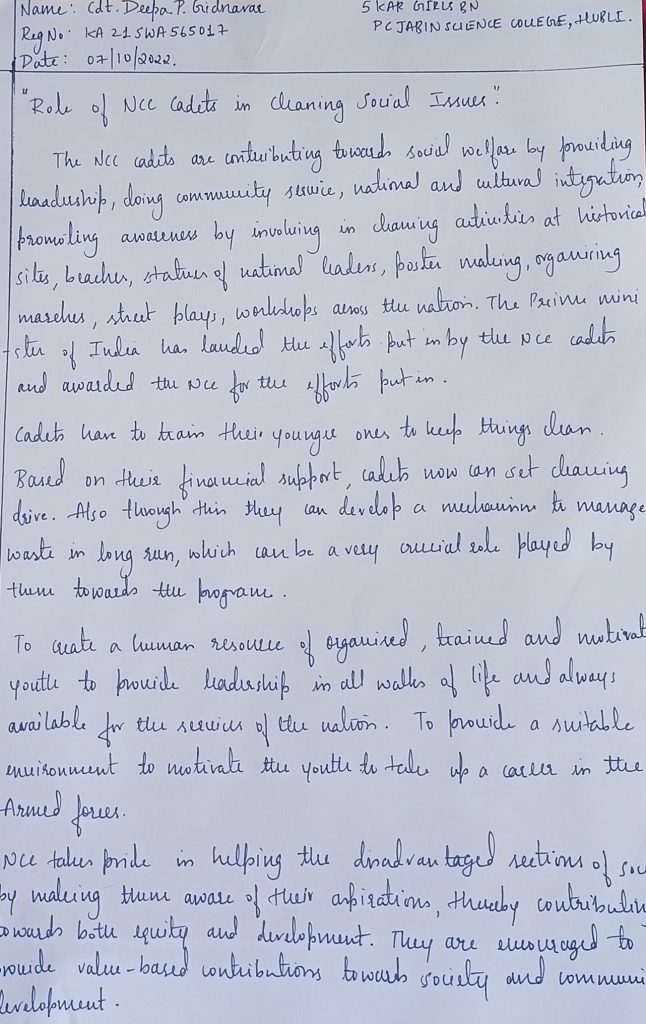 Name: Cdt. Deepa. P. Gridnavar
5 KAR GIRLS BN
Reg No: KA 21 SWA 565017
P C JABIN SCIENCE COLLEGE, HUBLI.
Date: 07/10/2022.
"Role of NCC Cadets in Cleaning Social Issues".
The NCC cadets are contributing towards social welfare by providing
leaadership, doing community service, national and cultural integration,
promoting awareness by involving in cleaning activities at historical
sites, beaches, statues of national leaders, poster making, organising
marches, street plays, workshops across the nation. The Prime mini
-ster of India has lauded the efforts put in by the NCC cadets
and awarded the NCC for the efforts put in.
Cadets have to train their younger ones to keep things clean.
Based on their financial support, cadets now can set cleaning
drive. Also through this they can develop a mechanism to manage
waste in long run, which can be a very crucial role played by
them towards the program.
To create a human resource of organised, trained and motivat
youth to provide leadership in all walks of life and always
available for the services of the nation. To provide a suitable
environment to motivate the youth to take up a career in the
Armed forces.
NCC takes pride in helping the disadvantaged sections of soc
by making them aware of their aspirations, thereby contributin
towards both equity and development. They are encouraged to
rovide value-based contributions towards society and communi
development.